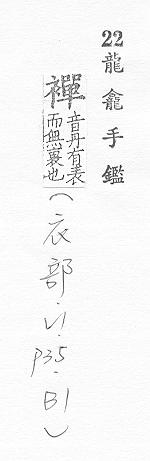 22龍龕手鑑
襌
音丹有表
而無裏也
(衣部.V1.P35.B1)